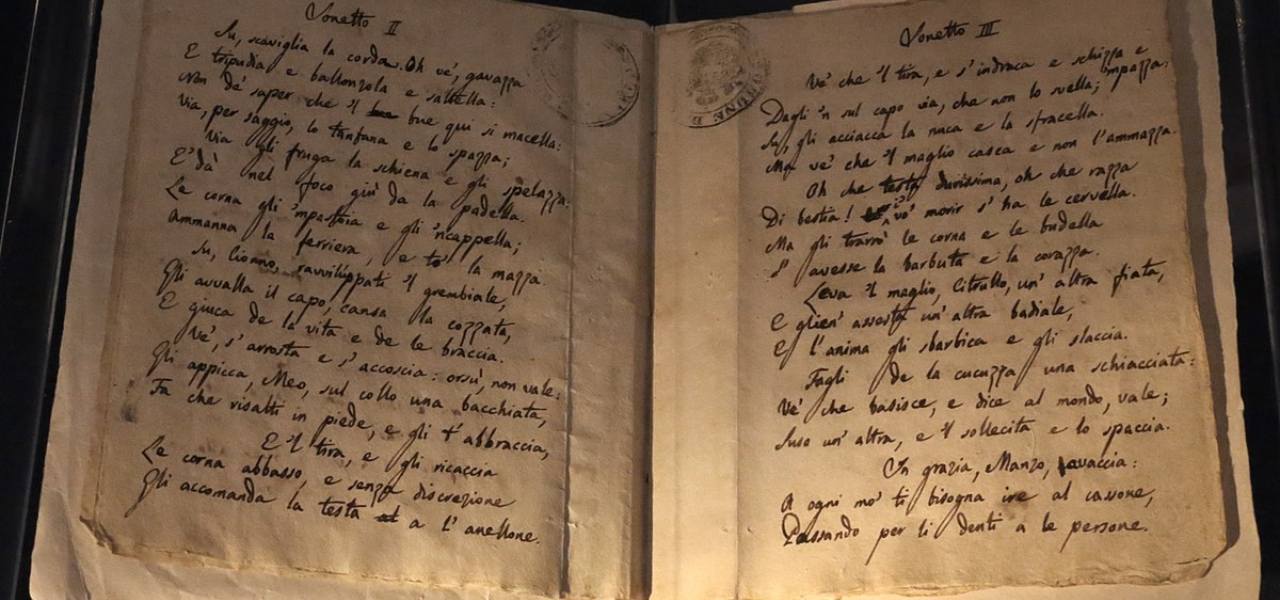 Sonetto II
Su, scaviglia la corda. Oh ve', gavazza
E tripudia e ballonzola e saltella:
Non de' saper che 'l bue qui si macella:
Via, per saggio, lo tanfana e lo spazza;
Via gli fruga la schiena e gli spelazza.
E' dà nel foco giù da la padella.
Le corna gli 'mpastoia e gli 'ncappella;
Ammanna la ferriera, e to' la mazza.
Su, Cionno, ravviluppati 'l grembiale,
Gli avvalla il capo, cansa la cozzata,
E giuca de la vita e de le braccia.
Ve', s'arrosta e s'accoscia: orsù, non vale:
Gli appicca, Meo, sul collo una bacchiata,
Fa che risalti in piede, e gli t'abbraccia,
E 'l tira, e gli ricaccia
Le corna abbasso, e senza discrezione
Gli accomanda la testa a l'anellone.
Sonetto III
Ve' che 'l tira, e s'indraca e schizza e 'mpazza:
Dagli 'n sul capo via, che non lo svella;
Su, gli acciacca la nuca e la sfracella.
Ma ve' che 'l maglio casca e non l'ammazza.
Oh che testa durissima, oh che razza
Di bestia! vo' morir s'ha le cervella.
Ma gli trarrò le corna e le budella
S'avesse la barbuta e la corazza.
Leva 'l maglio, Citrullo, un'altra fiata,
E glien' assesta un'altra badiale,
E l'anima gli sbarbica e gli slaccia.
Fagli de la cucuzza una schiacciata:
Ve' che basisce, e dice al mondo, vale;
Suso un'altra, e 'l sollecita e lo spaccia.
In grazia, Manzo, avaccia:
A ogni mo' ti bisogna ire al cassone,
Passando per li denti a le persone.